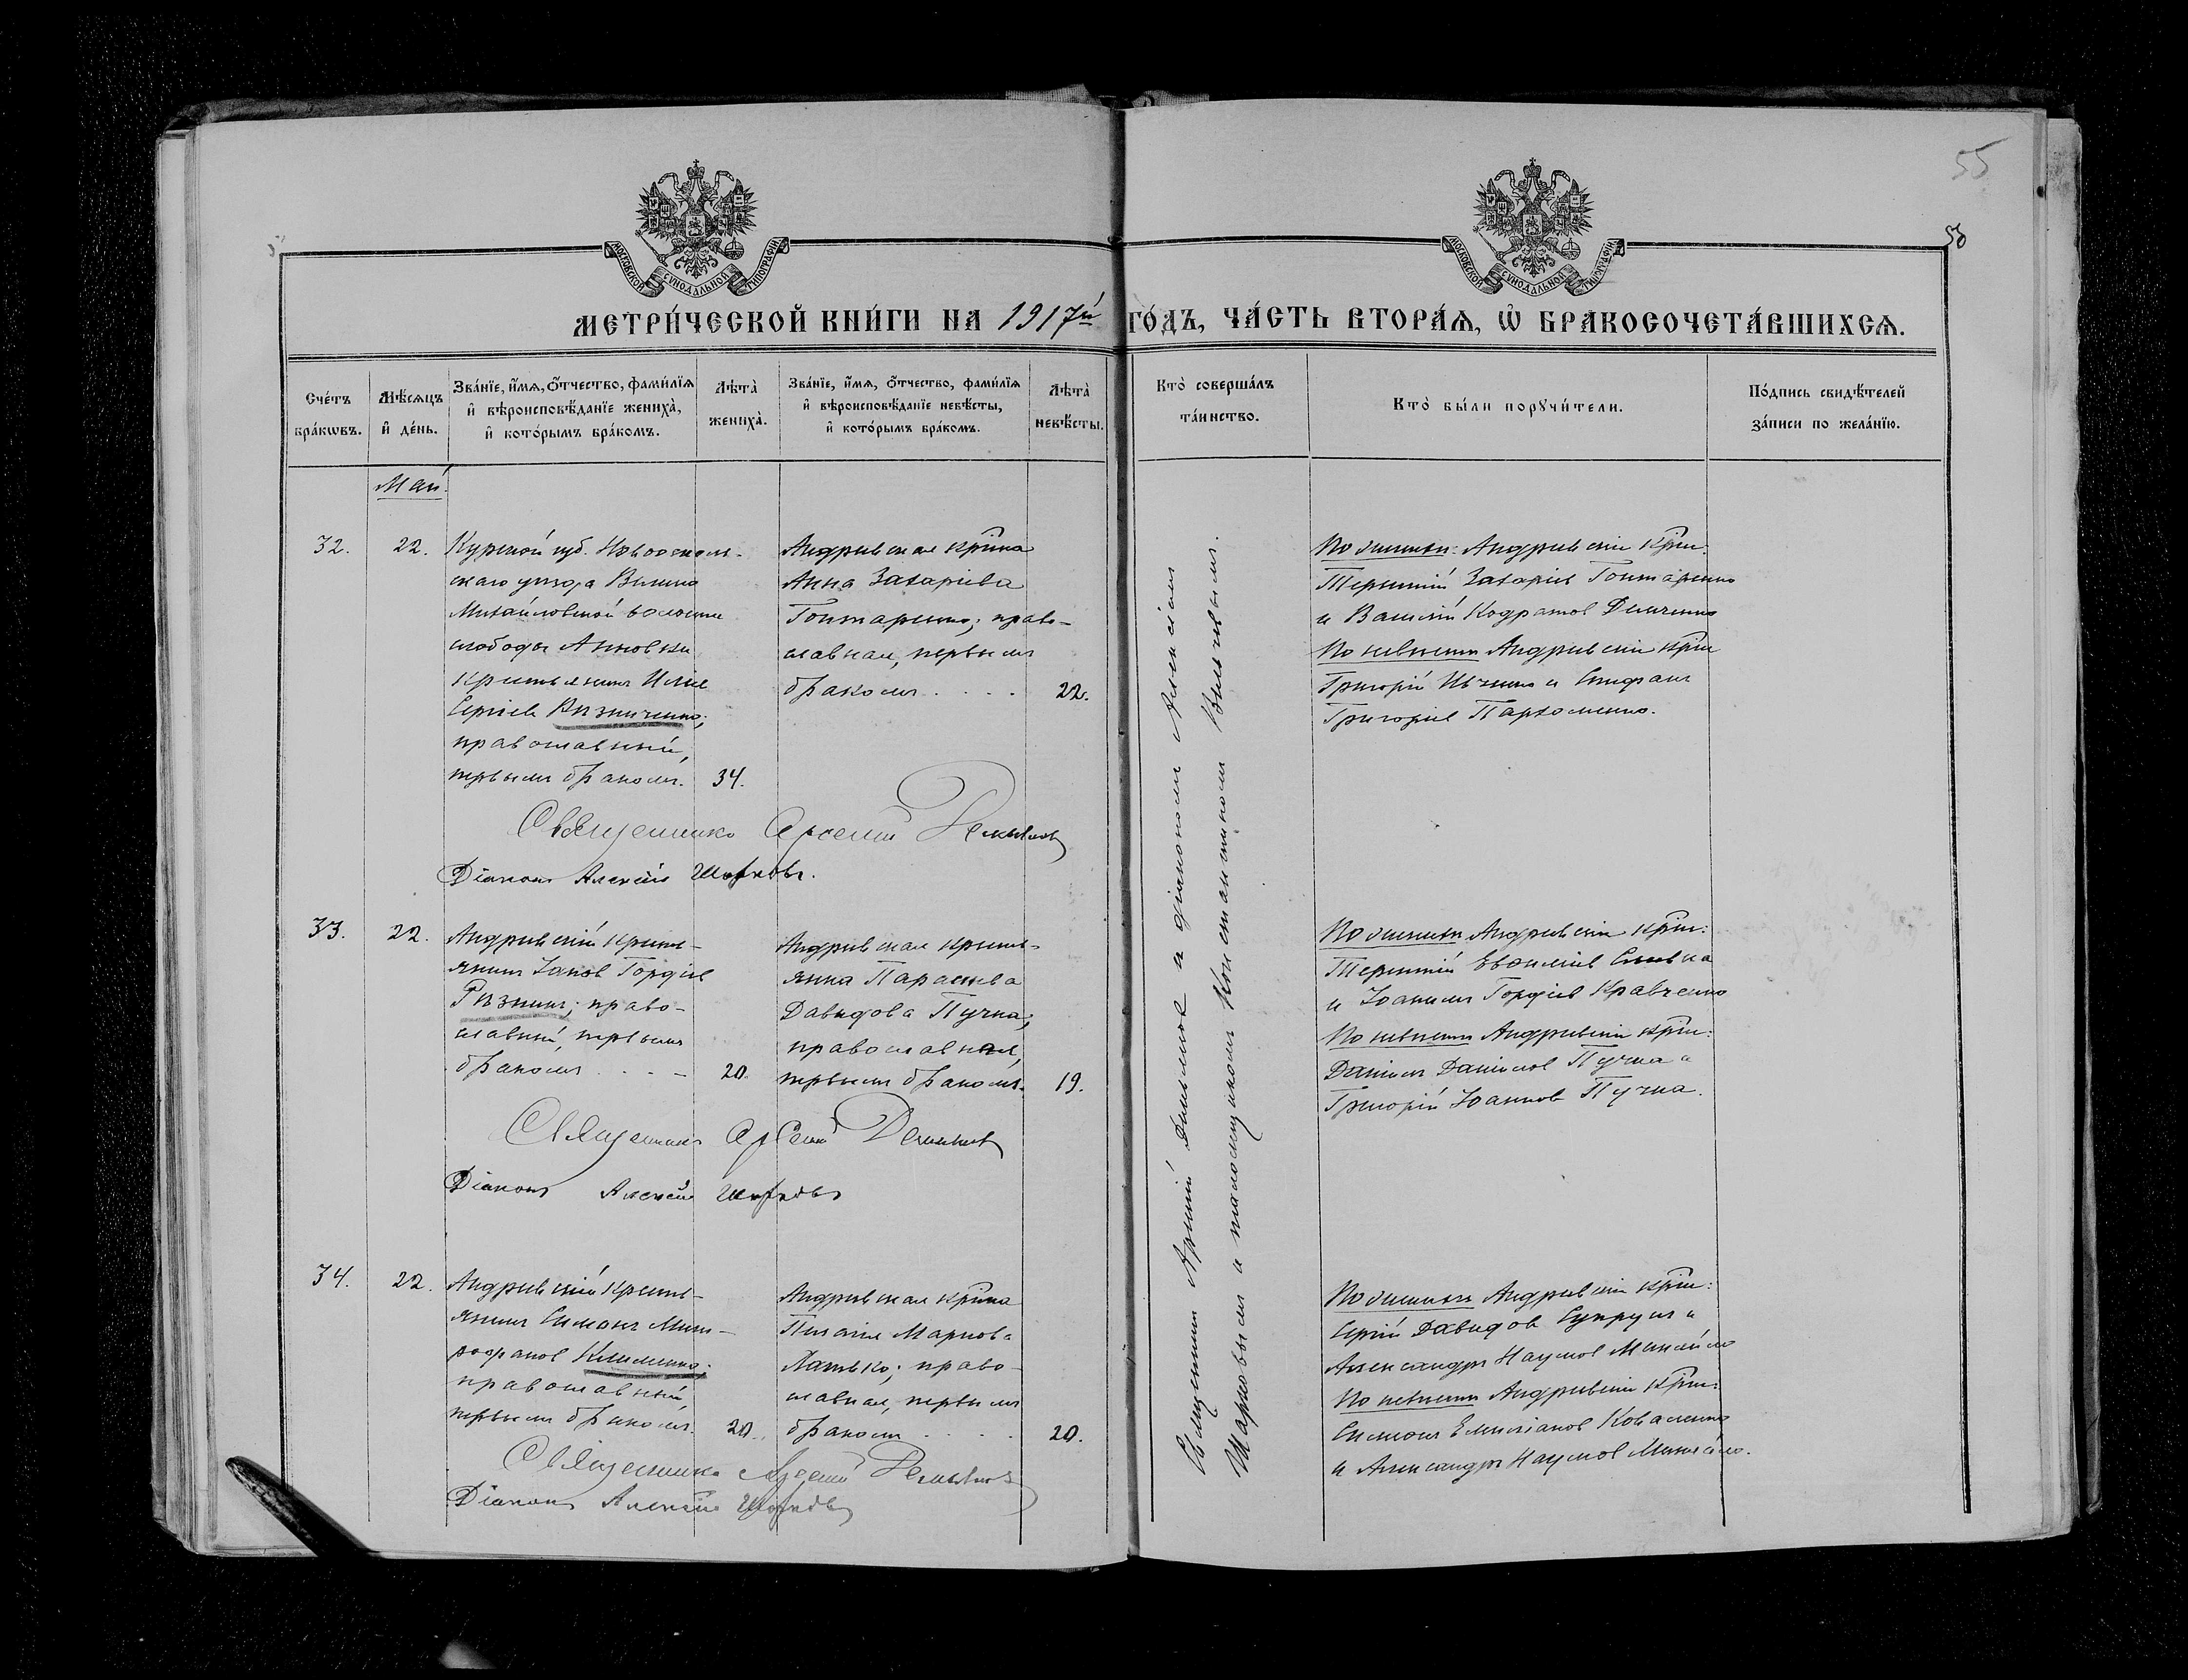 55
58
МОСКОВСКОЙ СѴНОДАЛЬНОЙ ТИПОГРАФІИ
МОСКОВСКОЙ СѴНОДАЛЬНОЙ ТИПОГРАФІИ
МЕТРИ́ЧЕСКОЙ КНИ́ГИ НА 1917й ГО́ДЪ, ЧА́СТЬ ВТОРА́Я, Ѡ БРАКОСОЧЕТА́ВШИХСѦ.
Сче́тъ
бра́кѡвъ.
Мѣ́сѧцъ
и҆ де́нь.
Зва́нїе, и҆́мѧ, ѻ҆́тчество, фами́лїѧ
и҆ вѣроисповѣ́данїе жениха̀,
и҆ кото́рымъ бра́комъ.
Лѣ́та̀
жениха̀.
Зва́нїе, и҆́мѧ, ѻ҆́тчество, фами́лїѧ
и҆ вѣроисповѣ́данїе невѣ́сты,
и҆ кото́рымъ бра́комъ.
Лѣ́та̀
невѣ́сты.
Кто̀ соверша́лъ
та́инство.
Кто̀ бы́ли порꙋчи́тели.
По́дпись свидѣ́телей
за́писи по жела́нїю.
Май.
32.
22.
Курской губ. Новооскол-
скаго уѣзда Велико
Михайловской волости
слободы Анновки
крестьянинъ Илія
Сергіевъ Визниченко;
православный,
первымъ бракомъ.
34.
Андреевская кр̃нка
Анна Захаріева
Гонтаренко; право-
славная, первымъ
бракомъ . . . .
22.
По женихѣ: Андреевскіи кр̃не:
Терентій Захаріевъ Гонтаренко
и Василій Кодратовъ Демченко
По невѣстѣ Андреевскіи кр̃не
Григорій Ивченко и Стефанъ
Григоріевъ Пархоменко.
Священникъ Арсеній
Діаконъ Алексій Шарковъ.
33.
22.
Андреевскій кресть-
янинъ Іаковъ Гордіевъ
Рѣзникъ; право-
славный, первымъ
бракомъ . . . –
20.
Андреевская кресть-
янка Параскева
Давидова Пучка;
православная,
первымъ бракомъ.
19.
По женихѣ Андреевскіи кр̃не:
Терентій Евѳиміевъ
и Іоаннъ Гордіевъ Кравченко
По невѣстѣ Андреевскіи кр̃не:
Даніилъ Даніиловъ Пучка и
Григорій Іоанновъ Пучка.
Священникъ Арсеній
Діаконъ Алексій Шарковъ
34.
22.
Андреевскій кресть-
янинъ Симеонъ Мит-
рофановъ Клименко;
православный,
первымъ бракомъ.
20.
Андреевская кр̃нка
Пелагія Маркова
Латько; право-
славная, первымъ
бракомъ . . . .
20.
По женихѣ Андреевскіи кр̃не:
Сергій Давидовъ Супрунъ и
Александръ Наумовъ Михайло
По невѣстѣ Андреевскіи кр̃не:
Симеонъ Емиліановъ Коваленко
и Александръ Наумовъ Михайло.
Священникъ Арсеній
Діаконъ Алексій Шарковъ
Священникъ Арсеній съ діакономъ Алексіемъ
Шарковымъ и псаломщикомъ Константиномъ